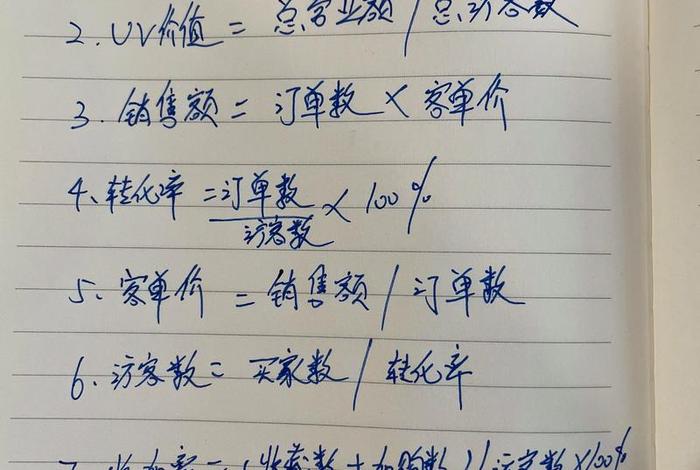 2. UV价值 = 总营业额 / 总访客数
3. 销售额 = 订单数 × 客单价
4、转化率 = 订单数 × 100%
访客数
5、客单价 = 销售额 / 订单数
6、访客数 = 买家数 / 转化率
7、收加率 = (收藏数 + 加购数) / 访客数 × 100%